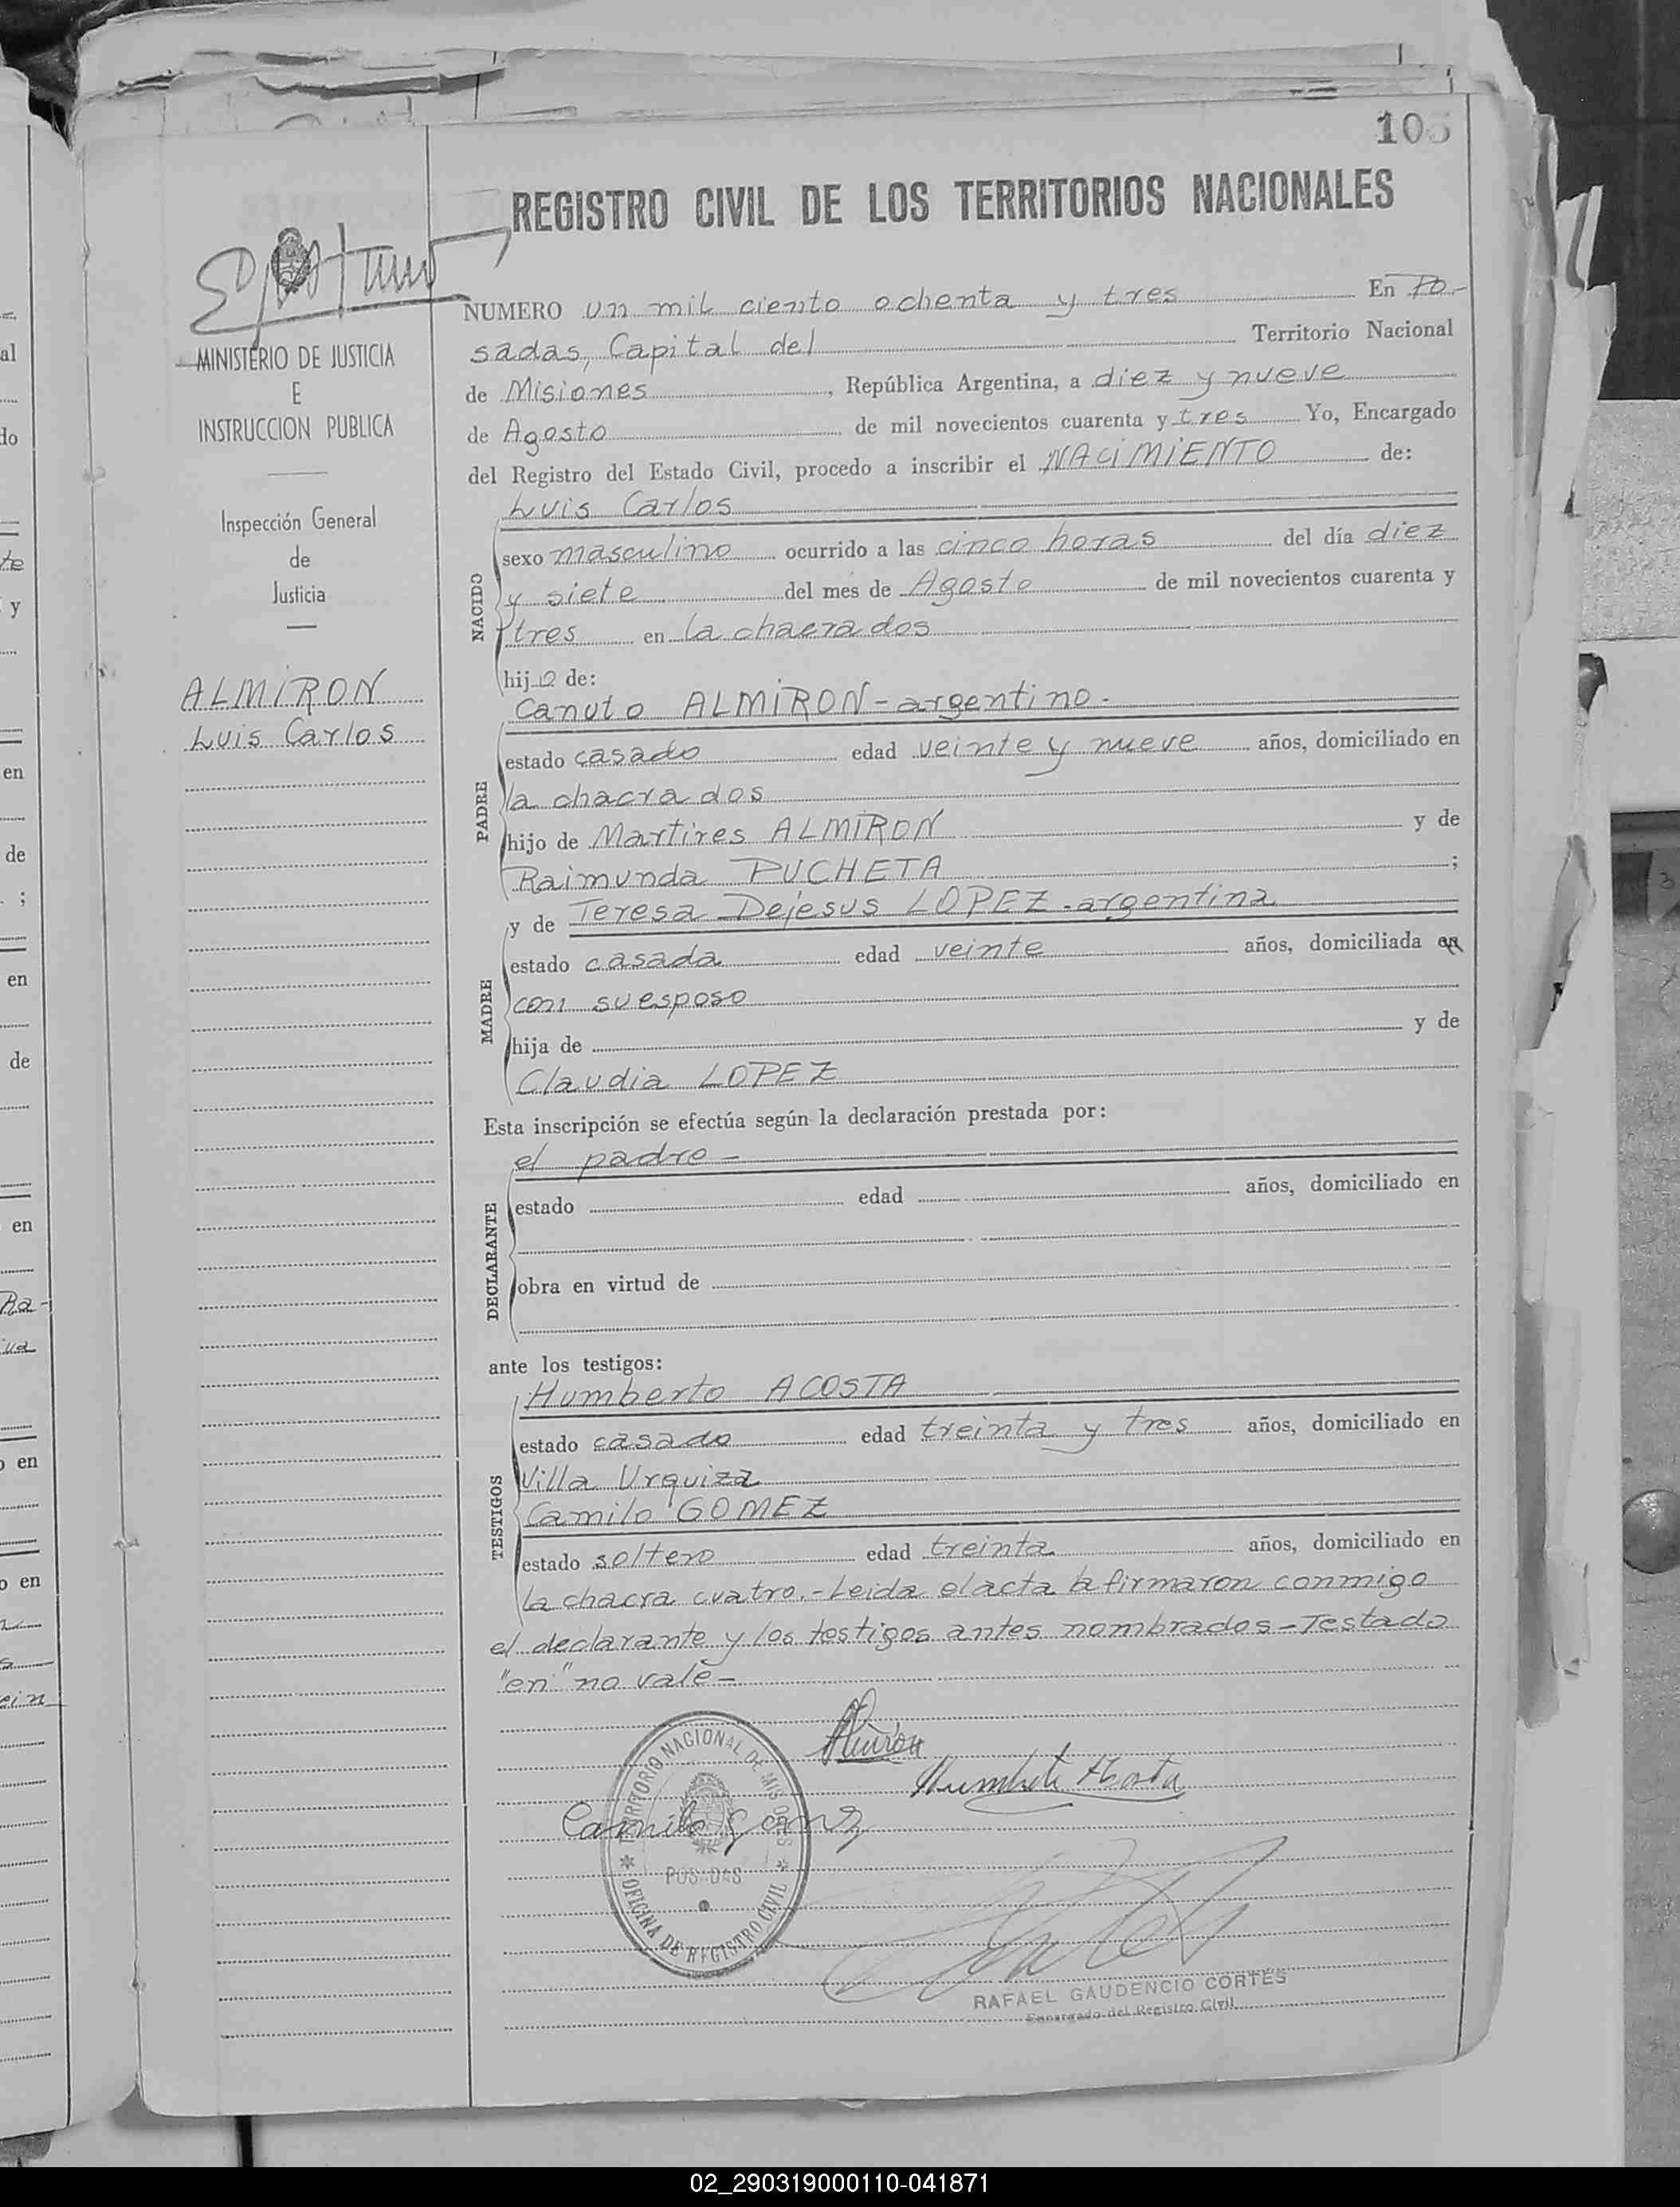 105
REGISTRO CIVIL DE LOS TERRITORIOS NACIONALES
MINISTERIO DE JUSTICIA
E
INSTRUCCION PUBLICA
Inspección General
de
Justicia
ALMIRON
Luis Carlos
NUMERO un mil ciento ochenta y tres En Po-
sadas, Capital del Territorio Nacional
de Misiones, República Argentina, a diez y nueve
de Agosto de mil novecientos cuarenta y tres Yo, Encargado
del Registro del Estado Civil, procedo a inscribir el NACIMIENTO de:
NACIDO
Luis Carlos
sexo masculino ocurrido a las cinco horas del día diez
y siete del mes de Agosto de mil novecientos cuarenta y
tres en la chacra dos
hijo de:
PADRE
Canuto ALMIRON - argentino.
estado casado edad veinte y nueve años, domiciliado en
la chacra dos
hijo de Martires ALMIRON y de
Raimunda PUCHETA ;
MADRE
y de Teresa Dejesus LOPEZ - argentina
estado casada edad veinte años, domiciliada en
con su esposo
hija de y de
Claudia LOPEZ
Esta inscripción se efectúa según la declaración prestada por:
DECLARANTE
el padre -
estado edad años, domiciliado en
obra en virtud de
ante los testigos:
TESTIGOS
Humberto ACOSTA
estado casado edad treinta y tres años, domiciliado en
Villa Urquiza
Camilo GOMEZ
estado soltero edad treinta años, domiciliado en
la chacra cuatro.- Leida el acta la firmaron conmigo
el declarante y los testigos antes nombrados - Testado
"en" no vale -
Almirón
Humberto Acosta
Camilo Gomez
TERRITORIO NACIONAL DE MISIONES
POSADAS
OFICINA DE REGISTRO CIVIL
RAFAEL GAUDENCIO CORTES
Encargado del Registro Civil
al
do
te
y
en
de
;
en
de
en
Ra-
en
o en
ein
02_290319000110-041871